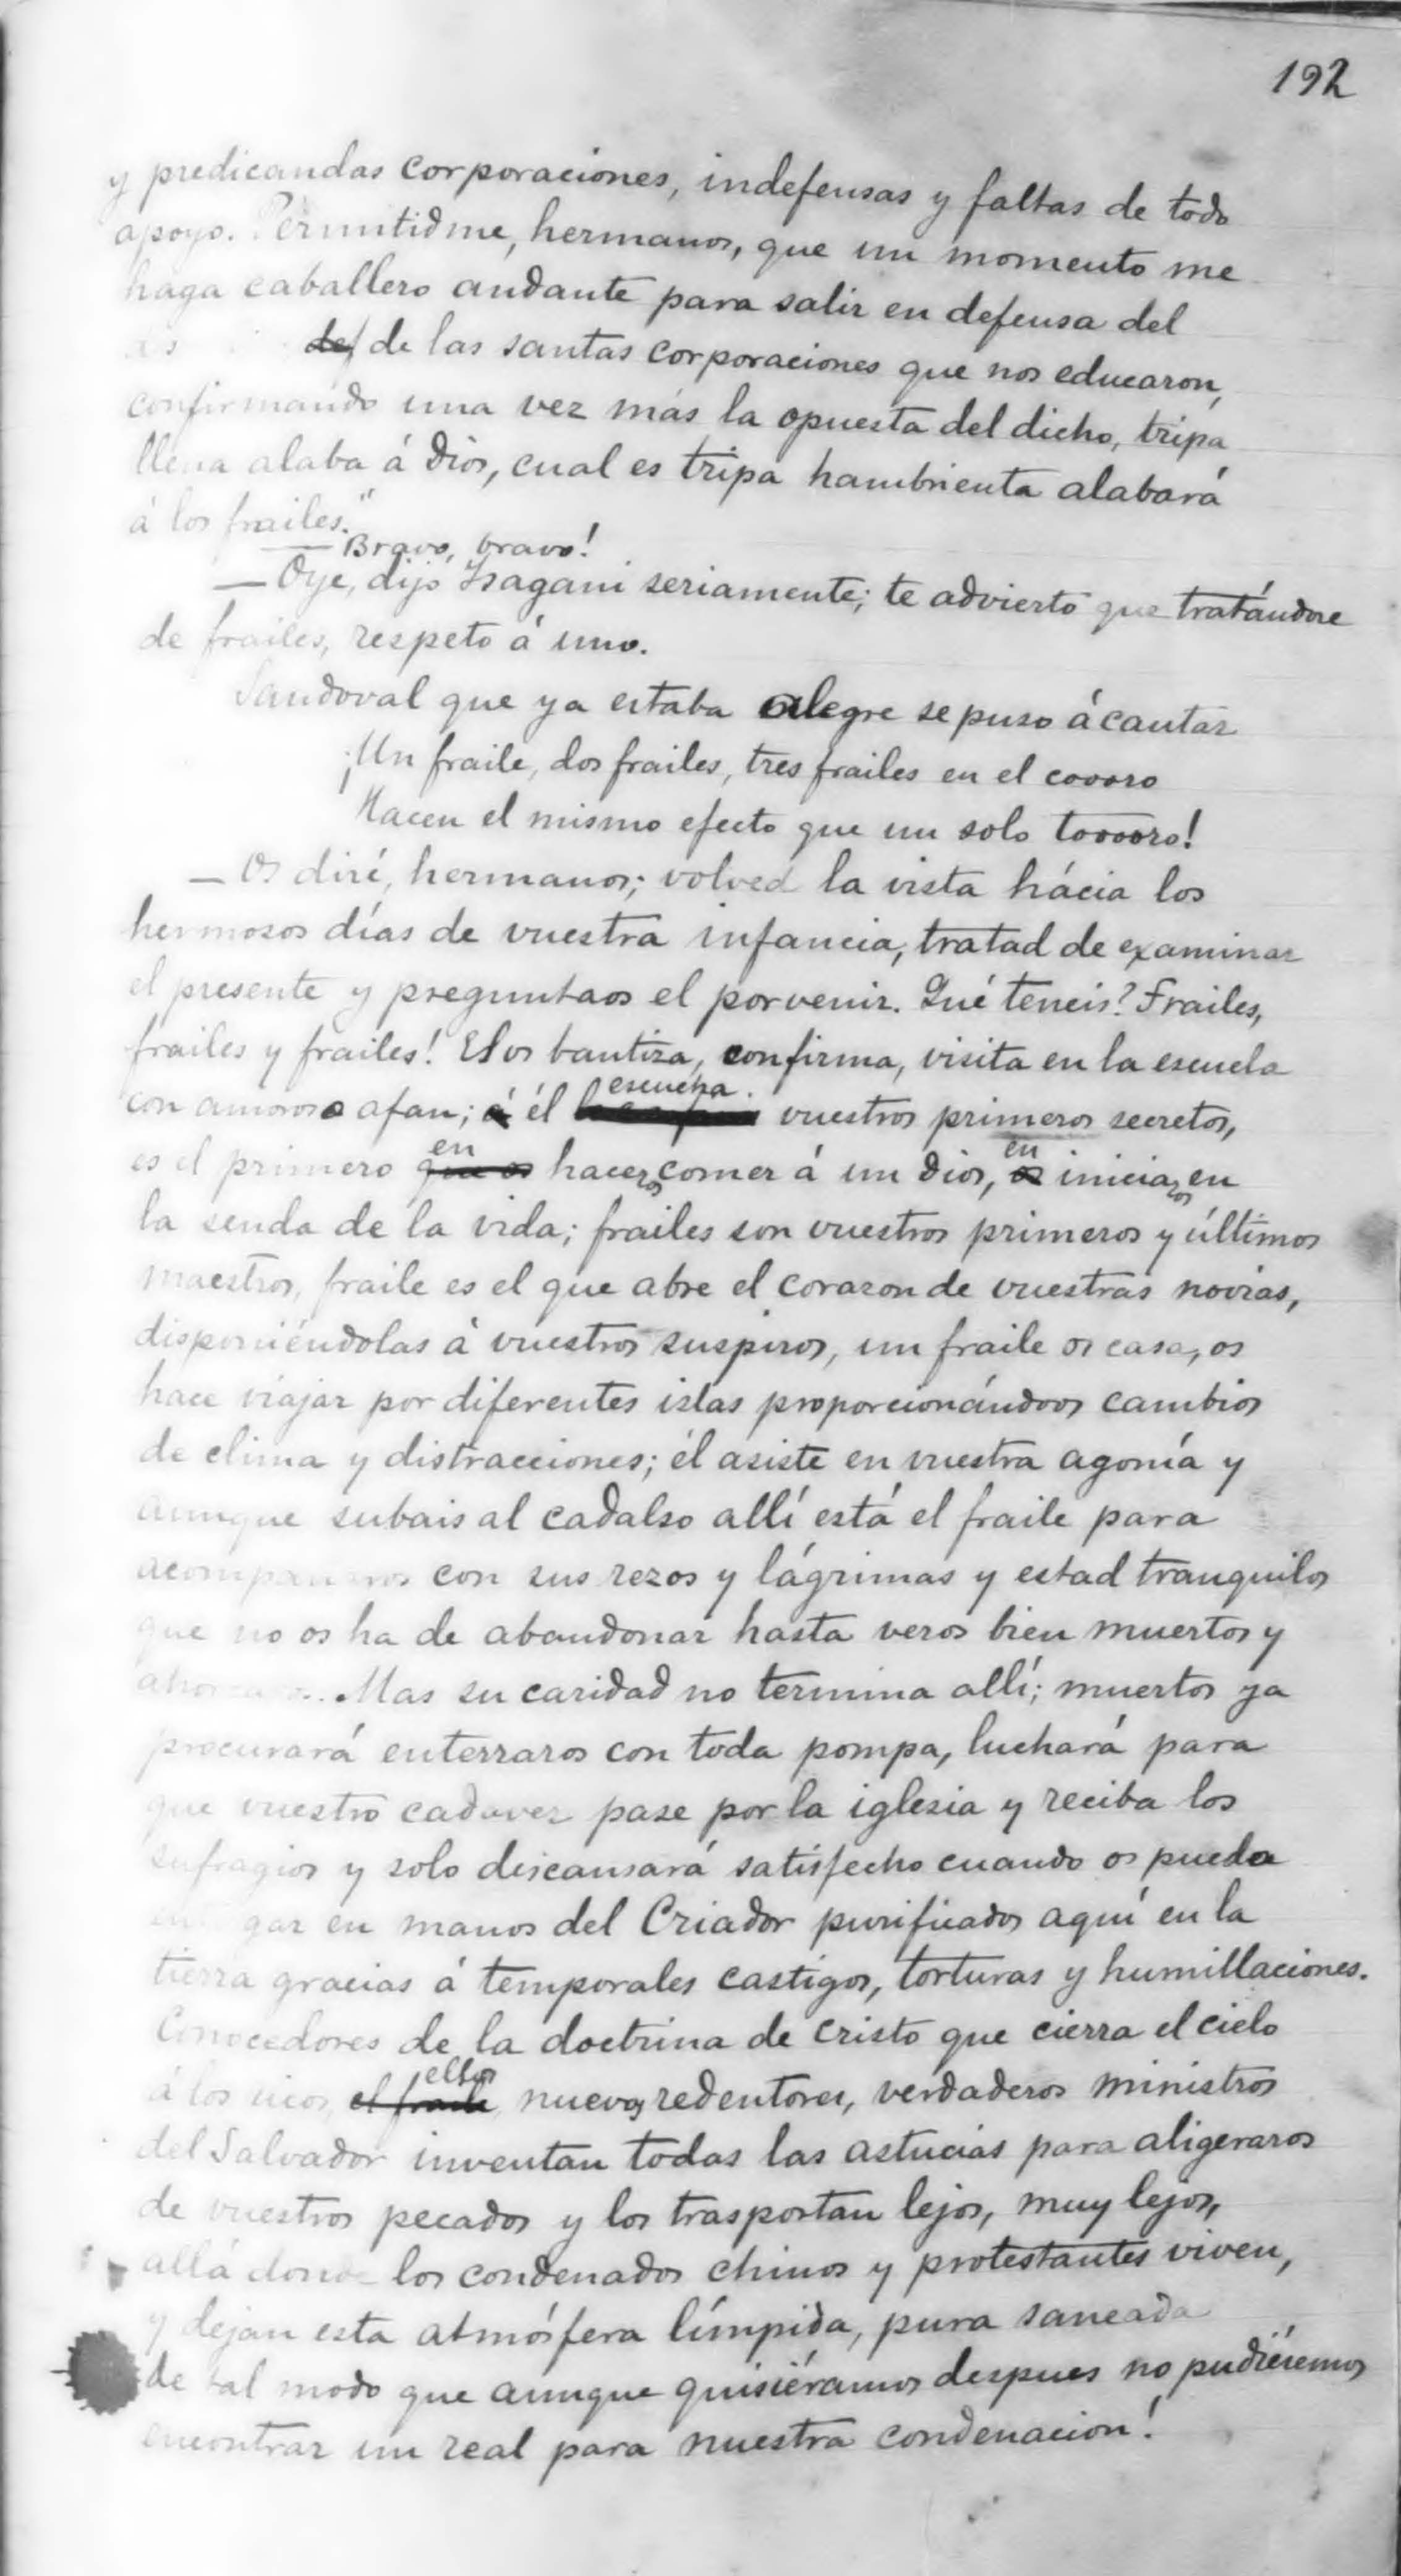 192
y predicandas corporaciones, indefensas y faltas de todo
apoyo. Permitidme, hermanos, que un momento me
haga caballero andante para salir en defensa del
de las santas corporaciones que nos educaron,
confirmando una vez más la opuesta del dicho, tripa
llena alaba á Dios, cual es tripa hambrienta alabará
á los frailes."
— Bravo, bravo!
— Oye, dijo Isagani seriamente; te advierto que tratándose
de frailes, respeto á uno.
Sandoval que ya estaba alegre se puso á cantar
¡Un fraile, dos frailes, tres frailes en el coooro
Hacen el mismo efecto que un solo toooro!
— Os diré, hermanos; volved la vista hácia los
hermosos días de vuestra infancia, tratad de examinar
el presente y preguntaos el porvenir. Qué teneis? Frailes,
frailes y frailes! El os bautiza, confirma, visita en la escuela
con amoroso afan; él escucha vuestros primeros secretos,
es el primero en haceros comer á un Dios, en iniciaros en
la senda de la vida; frailes son vuestros primeros y últimos
maestros, fraile es el que abre el corazon de vuestras novias,
disponiéndolas á vuestros suspiros, un fraile os casa, os
hace viajar por diferentes islas proporcionándoos cambios
de clima y distracciones; él asiste en vuestra agonía y
aunque subais al cadalso allí está el fraile para
acompañaros con sus rezos y lágrimas y estad tranquilos
que no os ha de abandonar hasta veros bien muertos y
ahorcados. Mas su caridad no termina allí; muertos ya
procurará enterraros con toda pompa, luchará para
que vuestro cadaver pase por la iglesia y reciba los
sufragios y solo descansará satisfecho cuando os pueda
entregar en manos del Criador purificados aquí en la
tierra gracias á temporales castigos, torturas y humillaciones.
Conocedores de la doctrina de Cristo que cierra el cielo
á los ricos, ellos, nuevos redentores, verdaderos ministros
del Salvador inventan todas las astucias para aligeraros
de vuestros pecados y los trasportan lejos, muy lejos,
allá donde los condenados chinos y protestantes viven,
y dejan esta atmósfera límpida, pura saneada
de tal modo que aunque quisiéramos despues no pudiéremos
encontrar un real para nuestra condenacion!